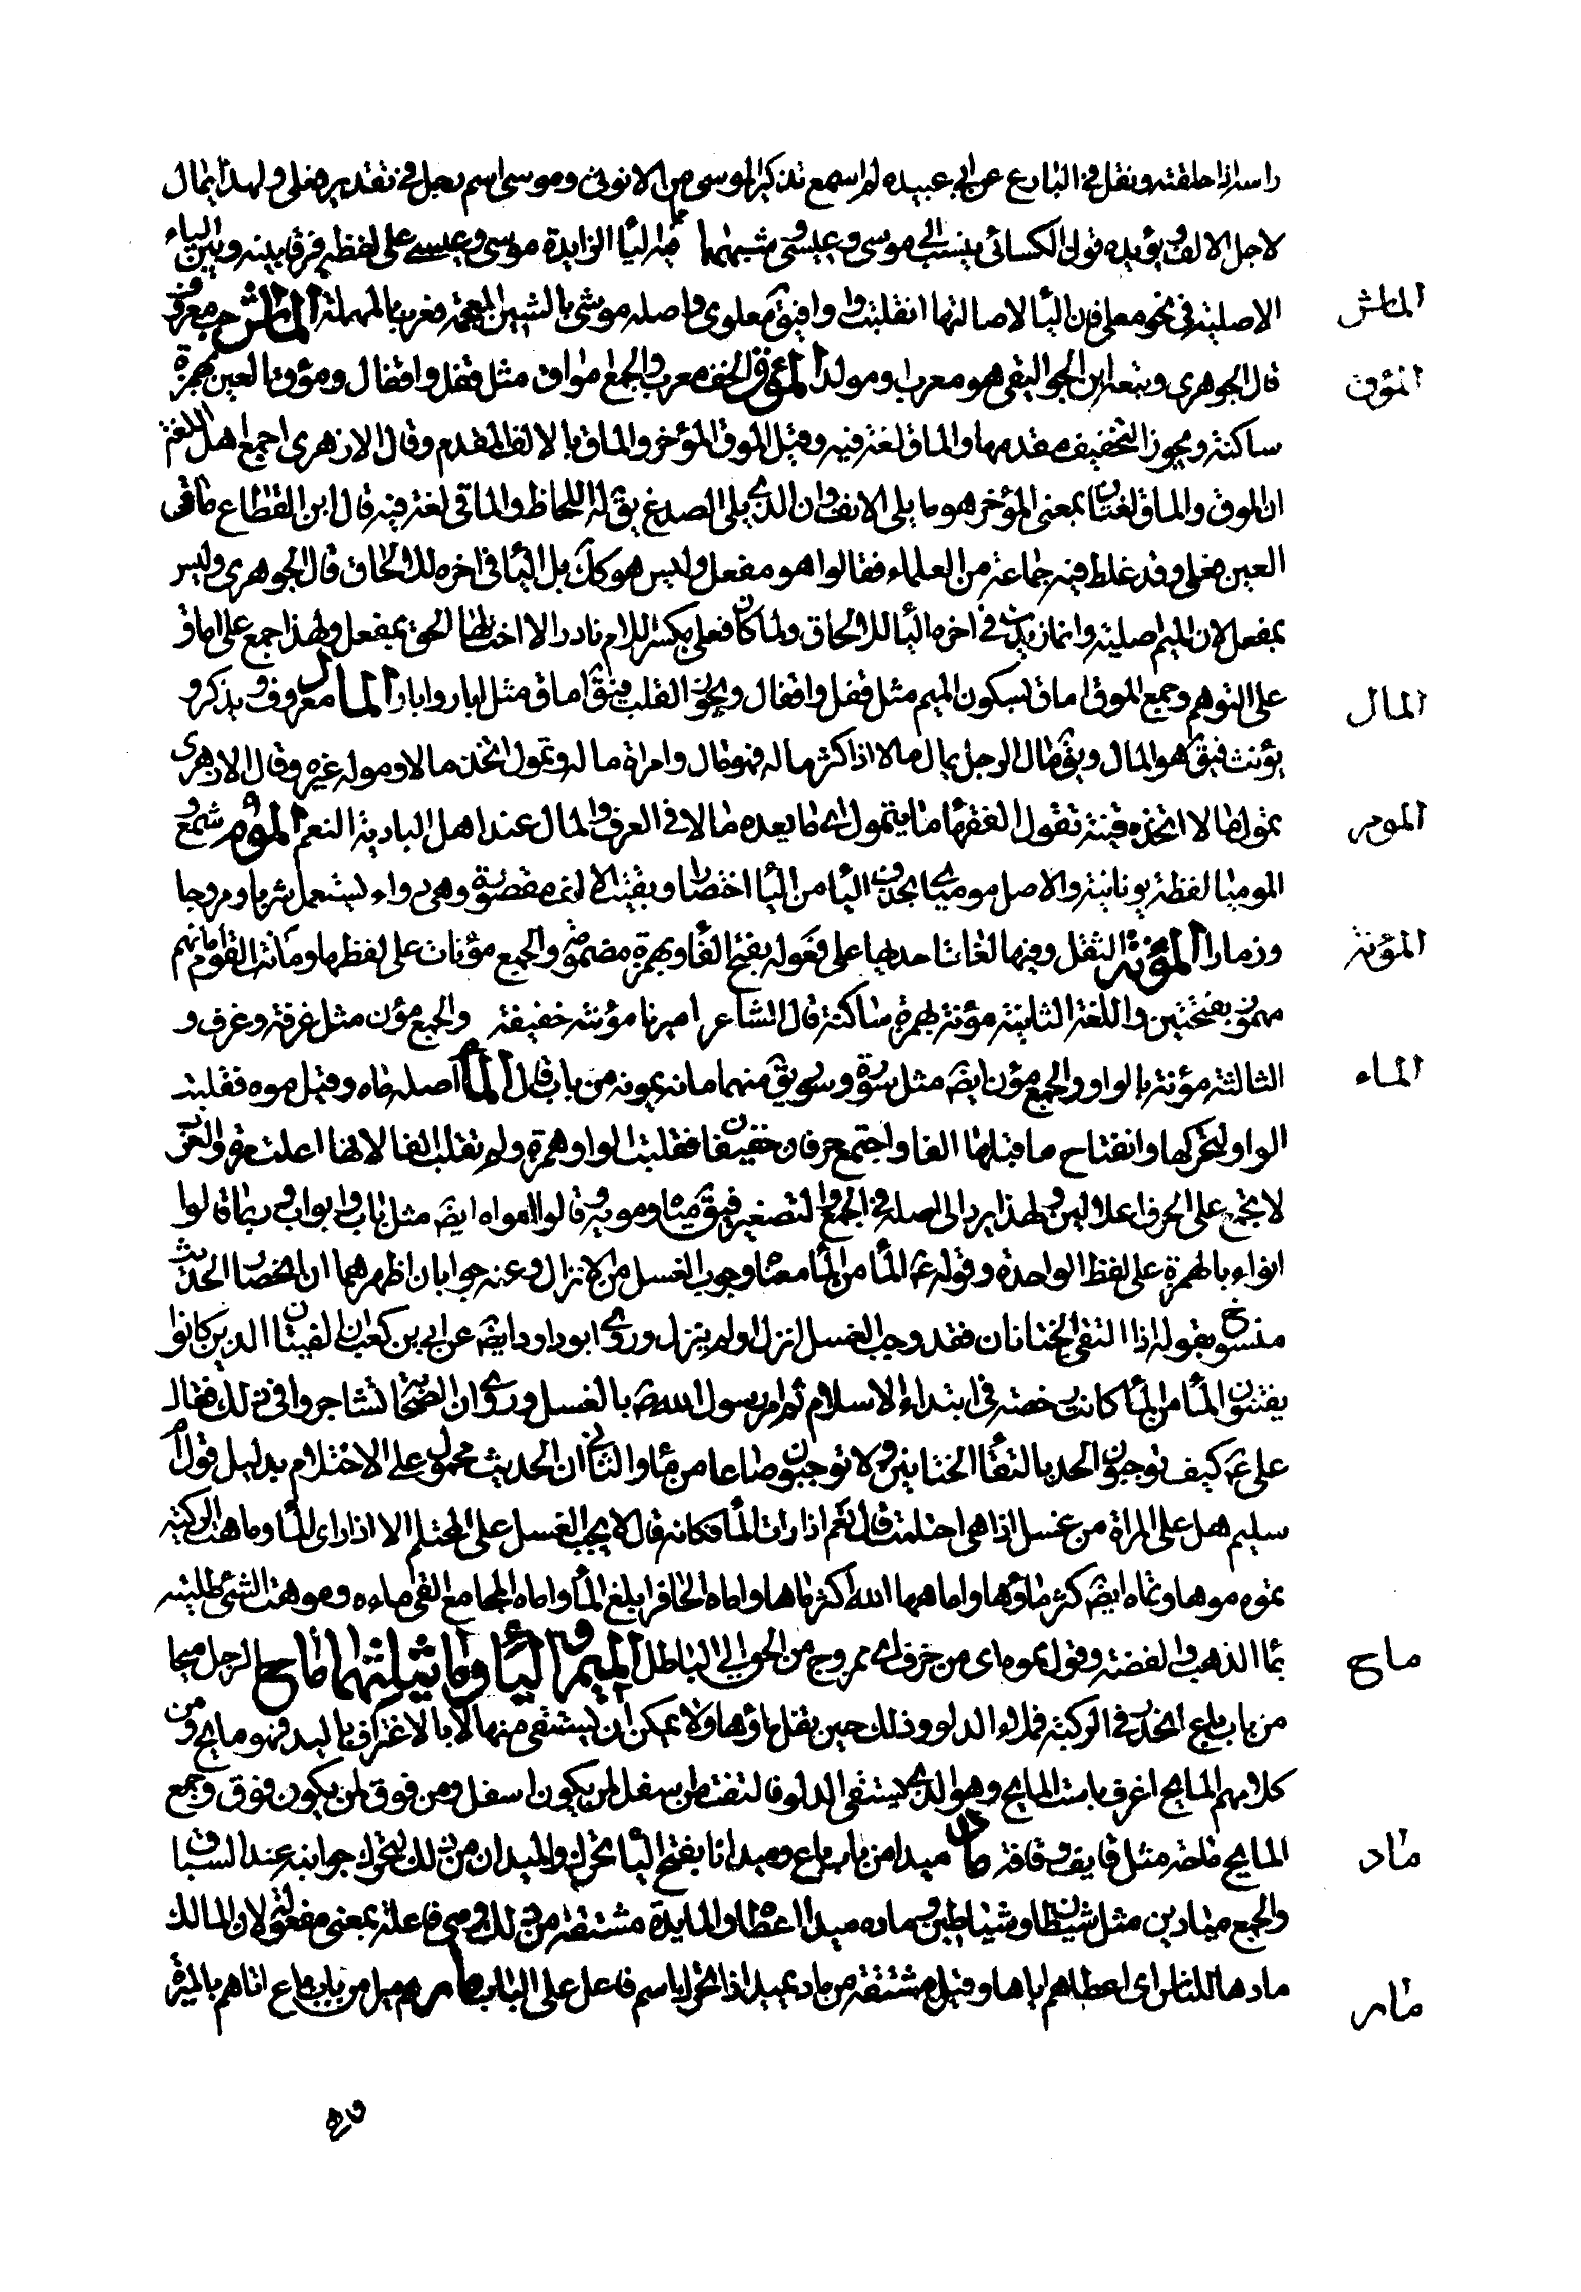 راسه اذا حلقته ونقل في البارع عن ابي عبيده لم اسمع تذكير الموسى من الاموى وموسى اسم رجل في تقدير فعلى ولهذا يمال
لاجل الالف ويؤيده قول الكسائى ينسب الى موسى وعيسى وشبههما مما اليا الزايدة موسى وعيسى على لفظه فرقا بينه وبين الياء
الاصلية في نحو معلى فان اليا لاصالتها انقلبت واوا فيق معلوى واصله موشى بالشين المعجمة فعرب بالمهملة الماش حب معروف
الماش
قال الجوهرى وتبعه ابن الجواليقى هو معرب او مولد الموق الخف معرب والجمع امواق مثل قفل واقفال ومؤق العين بهمزة
المؤق
ساكنة ويجوز التخفيف مقدمها والماق لغة فيه وقيل الموق المؤخر والماق بالالف المقدم وقال الازهرى اجمع اهل اللغة
ان الموق والماق لغتان بمعنى المؤخر هو ما يلى الانف وان الذى يلى الصدغ يق له اللحاظ والماقى لغة فيه قال ابن القطاع ماقى
العين فعلى وقد غلط فيه جماعة من العلماء فقالوا هو مفعل وليس هو كك بل اليا في اخره للالحاق قال الجوهرى وليس
بمفعل لان الميم اصلية وانما زيدت في اخره اليا للالحاق ولما كان فعلى بكسر اللام نادر الا اخت لها الحق بمفعل ولهذا جمع على اماق
على التوهم وجمع الموق اماق بسكون الميم مثل قفل واقفال ويجوز القلب فيق اماق مثل ابار وابار المال معروف ويذكر و
المال
يؤنث فيق هو المال ويق مال الرجل يمال مالا اذا كثر ماله فهو مال وامراة ماله وتمول اتخذ مالا وموله غيره وقال الازهرى
تمول مالا اتخذه قنية تقول الفقها ما يتمول اى ما يعده مالا في العرف والمال عند اهل البادية النعم الموم شمع و
الموم
الموميا لفظة يونانية والاصل موميا بحذف اليا من اليا اختصارا وبقيت الالف مقصورة وهى دواء يستعمل شربا ومروخا
وضمادا المؤنة الثقل وفيها لغات احديها على فعوله بفتح الفا وبهمزة مضمومة والجمع مؤنات على لفظها ومانت القوم امانهم
المؤنة
مهموز بفتحتين واللغة الثانية مؤنة بهمزة ساكنة قال الشاعر اميرنا مؤنته خفيفة والجمع مؤن مثل غرفة وغرف و
الثالثة مؤنة بالواو والجمع مؤن ايضا مثل سورة وسور يق منهما مانه يمونه من باب قال الما اصله ماه وقيل موه فقلبت
الماء
الواو لتحركها وانفتاح ما قبلها الفا واجتمع حرفان خفيفا فقلبت الواو همزة ولم تقلب الفا لانها اعلت مرة والعرب
لا تجمع على الحرف اعلالين ولهذا يرد الى اصله في الجمع والتصغير فيق مياه ومويه وقالوا امواه ايضا مثل باب وابواب وربما قالوا
امواء بالهمزة على لفظ الواحدة وقوله ع الما من الما معناه وجوب الغسل من الانزال وعنه جوابان اظهرهما ان الخصر الحديث
منسوخ بقوله اذا التقى الختانان فقد وجب الغسل انزل اولم ينزل وروى ابو داود ايضا عن ابى بن كعب ان الفتيا الذين كانوا
يفتون الما من الما كانت رخصة في ابتداء الاسلام ثم امر رسول الله ص بالغسل وروى ان الصحابة تشاجروا في ذلك فقال
على ع كيف توجبون الحد بالتقا الختانين ولا توجبون صاعا من ماء والثانى ان الحديث محمول على الاحتلام بدليل قول ام
سليم هل على المراة من غسل اذا هى احتلمت قال نعم اذا رات الما فكانه قال لا يجب الغسل على المحتلم الا اذا راى الما وماهت الركية
تموه موها وتماه ايضا كثر ماؤها واماهها الله اكثر ماها واماه الحافر ابلغ الما واماه المجامع القى ماءه وموهت الشئ طليته
بما الذهب والفضة وقول مموه اى مزخرف اى ممزوج من الحق الى الباطل الميم واليا وما يثلثهما ماح الرجل ميحا
ماح
من باب باع انحدر في الركية فملاء الدلو وذلك حين يقل ماؤها ولا يمكن ان يستقى منها الا بالاغتراف باليد فهو مايح ومن
كلامهم المايح اعرف باست الماتح وهو الذى يستقى الدلو فالنقط من سفل لمن يكون اسفل ومن فوق لمن يكون فوق وجمع
المايح ماحة مثل قايف وقافة ماد ميدا من باب باع وميدانا بفتح اليا تحرك والميدان من ذلك لتحرك جوانبه عند السباق
ماد
والجمع ميادين مثل شيطان وشياطين وماده ميدا اعطاه والمايدة مشتقة من ذلك وهى فاعلة بمعنى مفعولة لان المالك
مادها للناس اى اعطاهم اياها وقيل مشتقة من ماد يميد اذا تحرك اسم فاعل على الباب مارهم ميرا من باب باع اتاهم بالميرة
مار